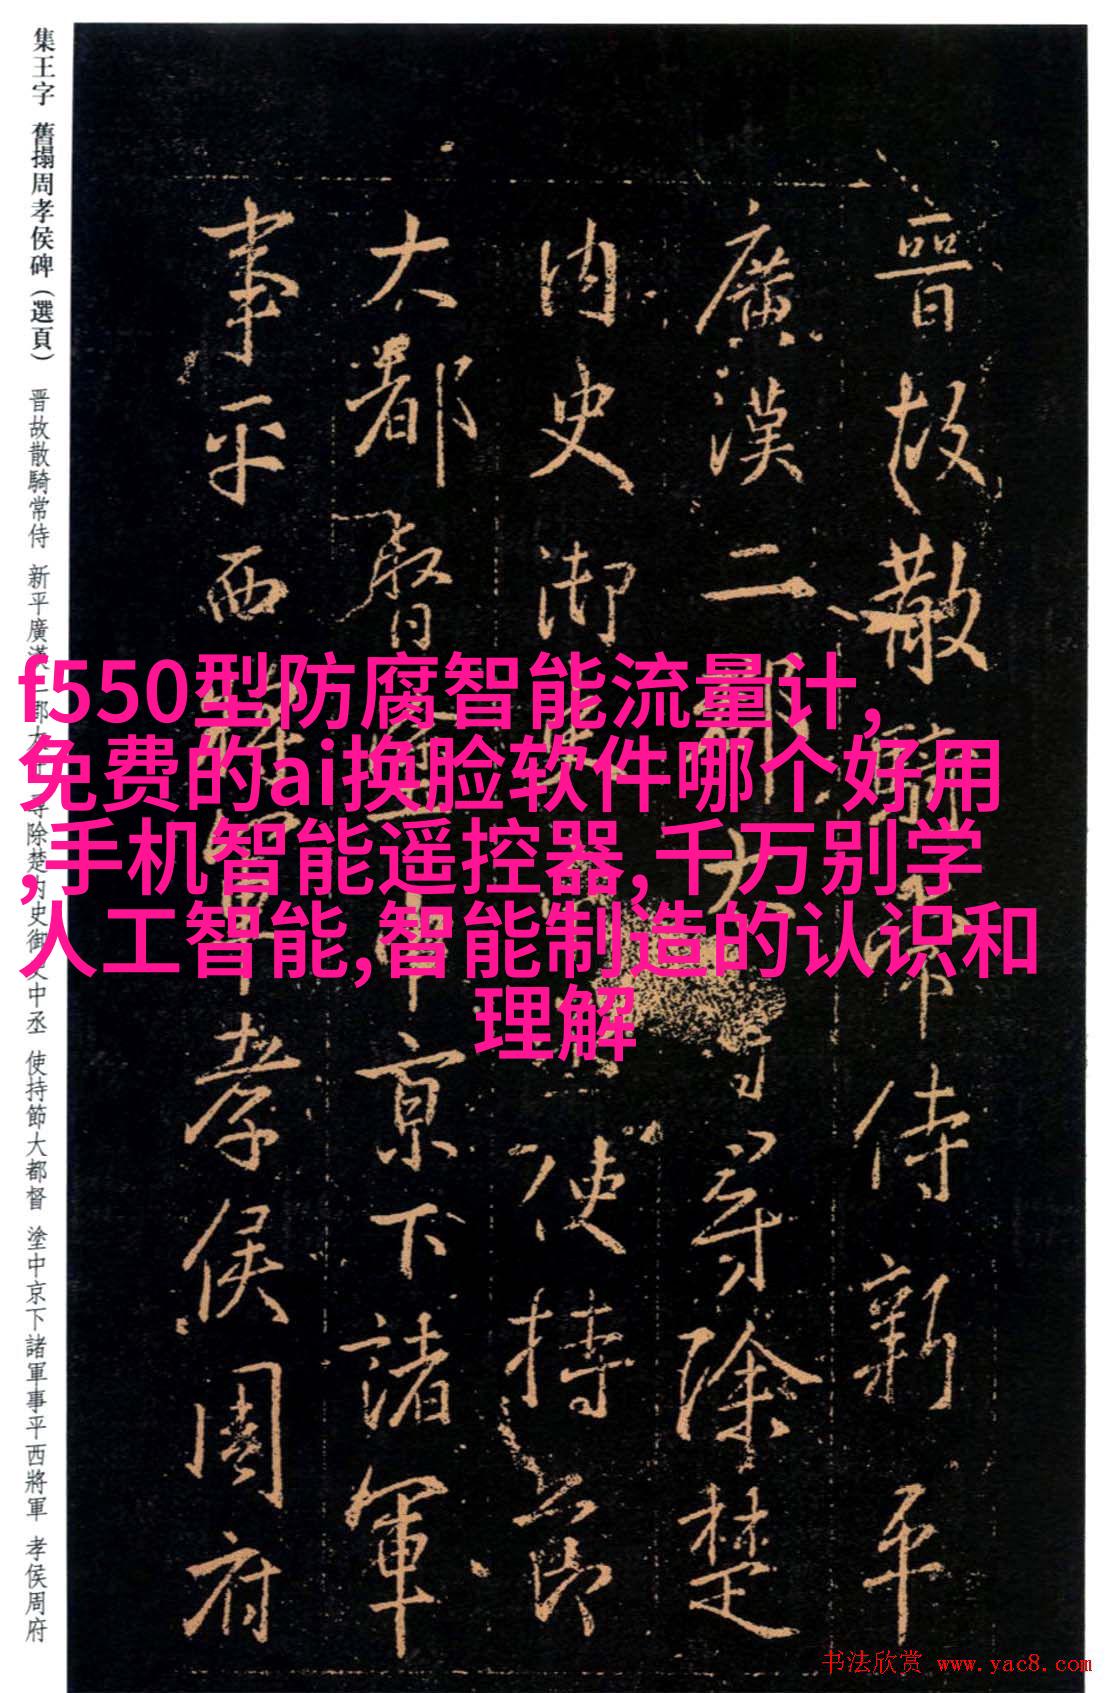 集王字 舊搨周孝侯碑(選頁) 晋故散騎常侍 新平廣漢二郡太守尋除楚内史御史中丞 使持節大都督 塗中京下諸軍事平西將軍 孝侯周府
晉故散騎常侍新平
廣漢二郡太守尋除楚
内史御史中丞使持節
大都督塗中京下諸軍
事平西將軍孝侯周府
f550型防腐智能流量计,
免费的ai换脸软件哪个好用
,手机智能遥控器,千万别学
人工智能,智能制造的认识和
理解
书法欣赏 www.yac8.com